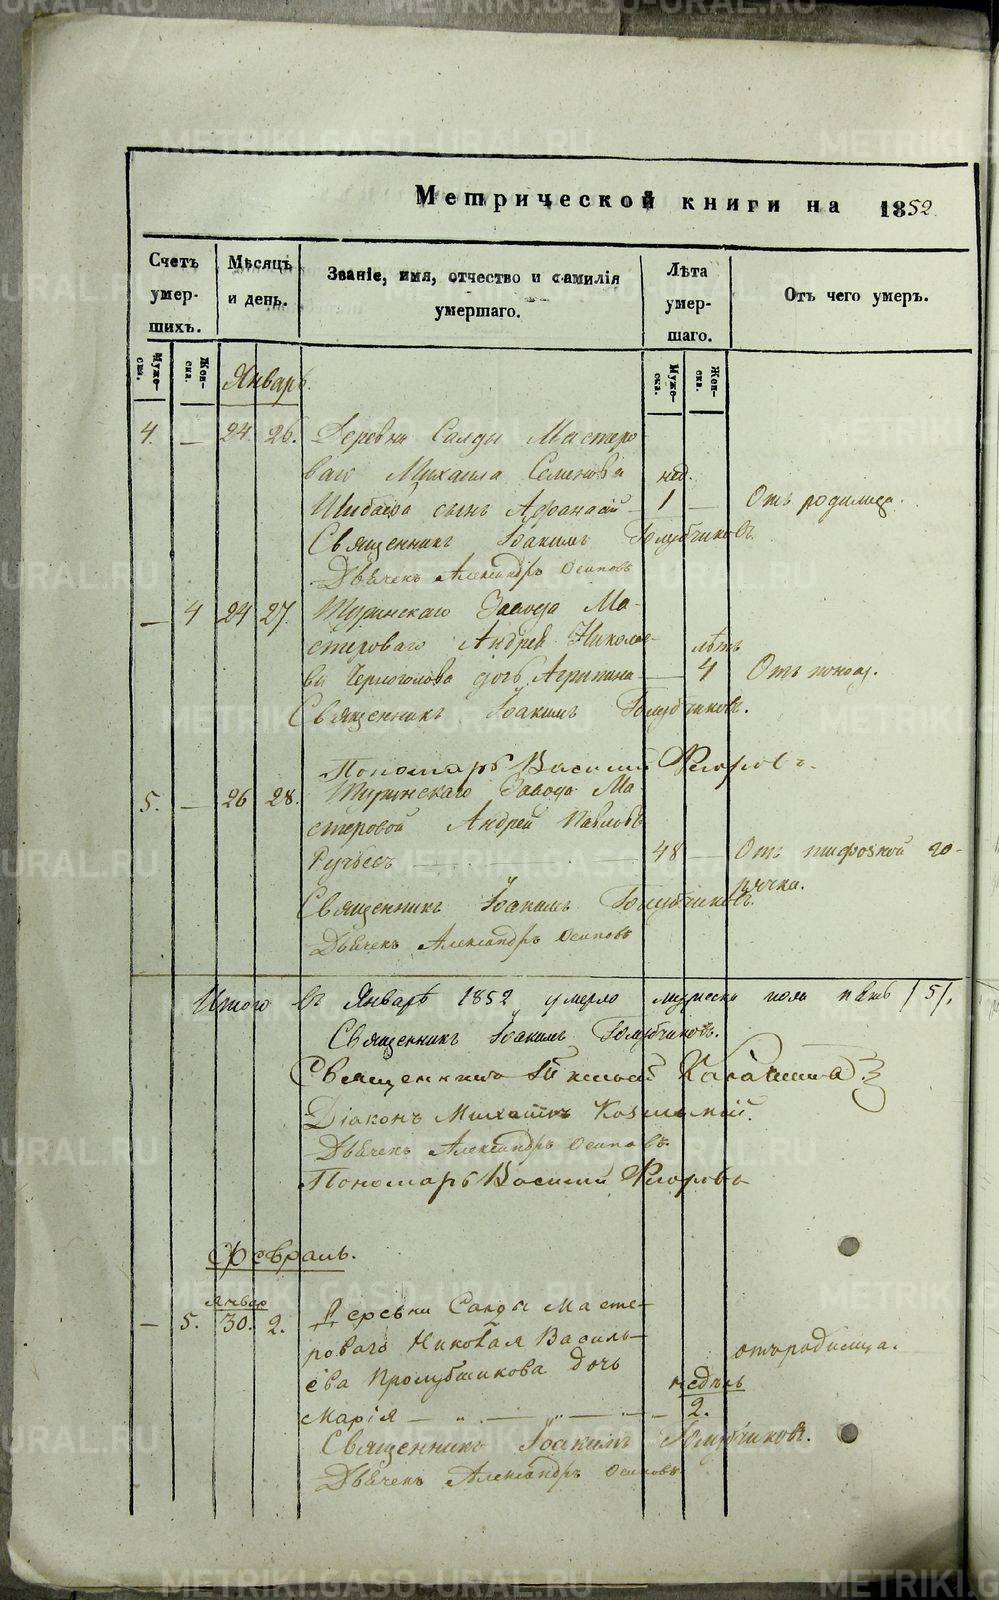 Метрической книги на 1852
Счетъ умер- шихъ.
Мѣсяцъ и день.
Званіе, имя, отчество и фамилія умершаго.
Лѣта умер- шаго.
Отъ чего умеръ.
Муже- ска.
Жен- ска.
Муже- ска.
Жен- ска.
Январь.
4. — 24. 26. Деревни Салды Мастеро-
ваго Михаила Семенова нед.
сынъ Афанасій 1 — Отъ родимца.
Священникъ Іоакимъ Голубчиковъ.
Дьячекъ Александръ Осиповъ
— 4 24 27. Туринскаго Завода Ма-
стероваго Андрея Николае- лѣтъ
ва Черноголова дочь Агрипина — 4 Отъ
Священникъ Іоакимъ Голубчиковъ.
Пономарь Василій Флоровъ.
5. — 26 28. Туринскаго Завода Ма-
стеровой Андрей Павловъ
48 — Отъ тифозной го-
рячки.
Священникъ Іоакимъ Голубчиковъ.
Дьячекъ Александръ Осиповъ
Итого въ Январѣ 1852 умерло мужеска пола пять /5/,
Священникъ Іоакимъ Голубчиковъ.
Священникъ
Діаконъ Михаилъ
Дьячекъ Александръ Осиповъ
Пономарь Василій Флоровъ
Февраль.
Январ
— 5. 30. 2. Деревни Салды Масте-
роваго Николая Василь-
ева дочь отъ родимца.
недѣль
Марія — 2.
Священникъ Іоакимъ Голубчиковъ.
Дьячекъ Александръ Осиповъ
METRIKI.GASO-URAL.RU